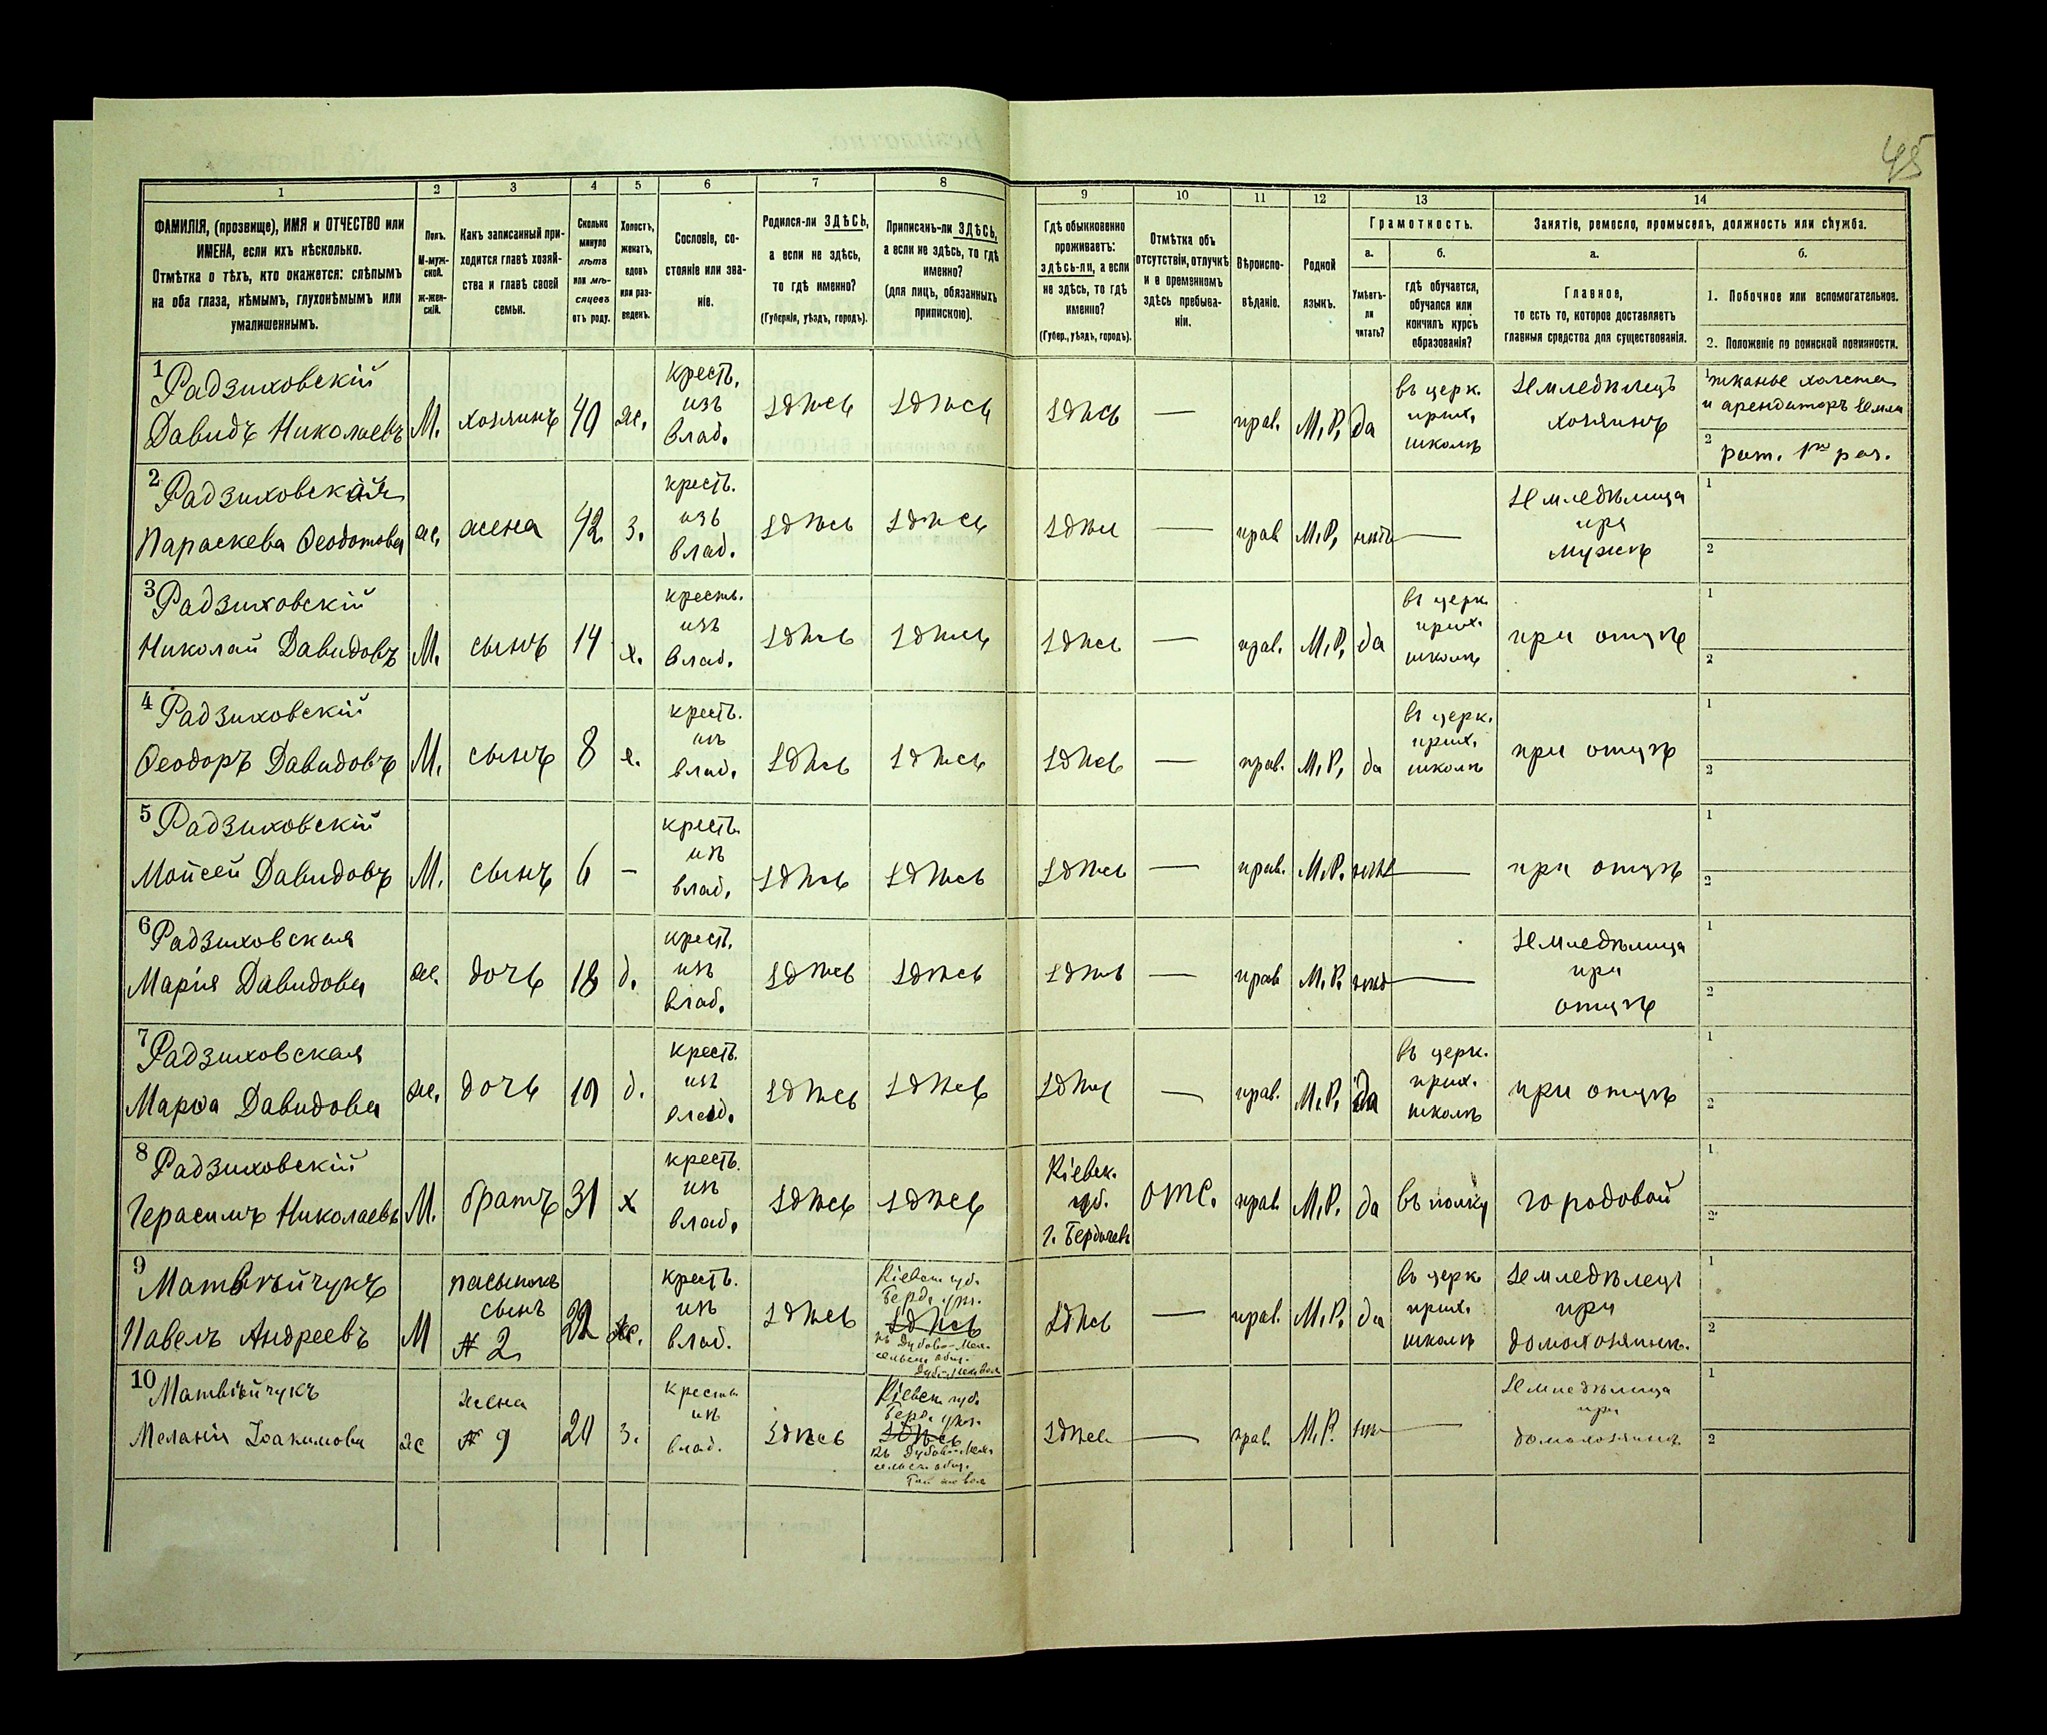 45
1 2 3 4 5 6 7 8 9 10 11 12 13 14
ФАМИЛІЯ, (прозвище), ИМЯ и ОТЧЕСТВО или
ИМЕНА, если ихъ нѣсколько.
Отмѣтка о тѣхъ, кто окажется: слѣпымъ
на оба глаза, нѣмымъ, глухонѣмымъ или
умалишеннымъ.
Полъ.
М-муж-
ской.
ж-жен-
скій.
Какъ записанный при-
ходится главѣ хозяй-
ства и главѣ своей
семьи.
Сколько
минуло
лѣтъ
или мѣ-
сяцевъ
отъ роду.
Холостъ,
женатъ,
вдовъ
или раз-
веденъ.
Сословіе, со-
стояніе или зва-
ніе.
Родился-ли ЗДѢСЬ,
а если не здѣсь,
то гдѣ именно?
(Губернія, уѣздъ, городъ).
Приписанъ-ли ЗДѢСЬ,
а если не здѣсь, то гдѣ
именно?
(для лицъ, обязанныхъ
припискою).
Гдѣ обыкновенно
проживаетъ:
здѣсь-ли, а если
не здѣсь, то гдѣ
именно?
(Губер., уѣздъ, городъ).
Отмѣтка объ
отсутствіи, отлучкѣ
и о временномъ
здѣсь пребыва-
ніи.
Вѣроиспо-
вѣданіе.
Родной
языкъ.
Грамотность.
а.
Умѣетъ-
ли
читать?
б.
гдѣ обучается,
обучался или
кончилъ курсъ
образованія?
Занятіе, ремесло, промыселъ, должность или служба.
а.
Главное,
то есть то, которое доставляетъ
главныя средства для существованія.
б.
1. Побочное или вспомогательное.
2. Положеніе по воинской повинности.
1 Радзиховскій
Давидъ Николаевъ
М.
хозяинъ
40
ж.
крест.
изъ
влад.
здѣсь
здѣсь
здѣсь
—
прав.
М.Р.
да
въ церк.
прих.
школѣ
Земледѣлецъ
хозяинъ
1 тканье холста
и арендаторъ земли
2 рат. 1го раз.
2 Радзиховская
Параскева Ѳеодотова
ж.
жена
42
з.
крест.
изъ
влад.
здѣсь
здѣсь
здѣсь
—
прав
М.Р.
нѣтъ
—
Земледѣлица
при
мужѣ
1
2
3 Радзиховскій
Николай Давидовъ
М.
сынъ
14
х.
кресть.
изъ
влад.
здѣсь
здѣсь
здѣсь
—
прав.
М.Р.
да
въ церк.
прих.
школѣ
при отцѣ
1
2
4 Радзиховскій
Ѳеодоръ Давидовъ
М.
сынъ
8
х.
крест.
изъ
влад.
здѣсь
здѣсь
здѣсь
—
прав.
М.Р.
да
въ церк.
прих.
школѣ
при отцѣ
1
2
5 Радзиховскій
Мойсей Давидовъ
М.
сынъ
6
—
крест.
изъ
влад.
здѣсь
здѣсь
здѣсь
—
прав.
М.Р.
нѣтъ
—
при отцѣ
1
2
6 Радзиховская
Марія Давидова
ж.
дочь
18
д.
крест.
изъ
влад.
здѣсь
здѣсь
здѣсь
—
прав
М.Р.
нѣтъ
—
Земледѣлица
при
отцѣ
1
2
7 Радзиховская
Марѳа Давидова
ж.
дочь
10
д.
крест.
изъ
влад.
здѣсь
здѣсь
здѣсь
—
прав.
М.Р.
да
въ церк.
прих.
школѣ
при отцѣ
1
2
8 Радзиховскій
Герасимъ Николаевъ
М.
братъ
31
х
крест.
изъ
влад.
здѣсь
здѣсь
Кіевск.
губ.
г. Бердичевъ
отс.
прав.
М.Р.
да
въ полку
городовой
1
2
9 Матвѣйчукъ
Павелъ Андреевъ
М
пасынокъ
сынъ
№ 2
22
ж.
крест.
изъ
влад.
здѣсь
Кіевск. губ.
Берд. уѣз.
здѣсь
къ Дубово-Мех.
сельск. общ.
здѣсь
—
прав.
М.Р.
да
въ церк.
прих.
школѣ
Земледѣлецъ
при
домохозяинѣ.
1
2
10 Матвѣйчукъ
Меланія Іоакимова
ж
жена
№ 9
20
з.
кресть
изъ
влад.
здѣсь
Кіевск. губ.
Берд. уѣз.
здѣсь
къ Дубово-Мех.
сельск. общ.
здѣсь
—
прав.
М.Р.
—
Земледѣлица
при
домохозяинѣ
1
2